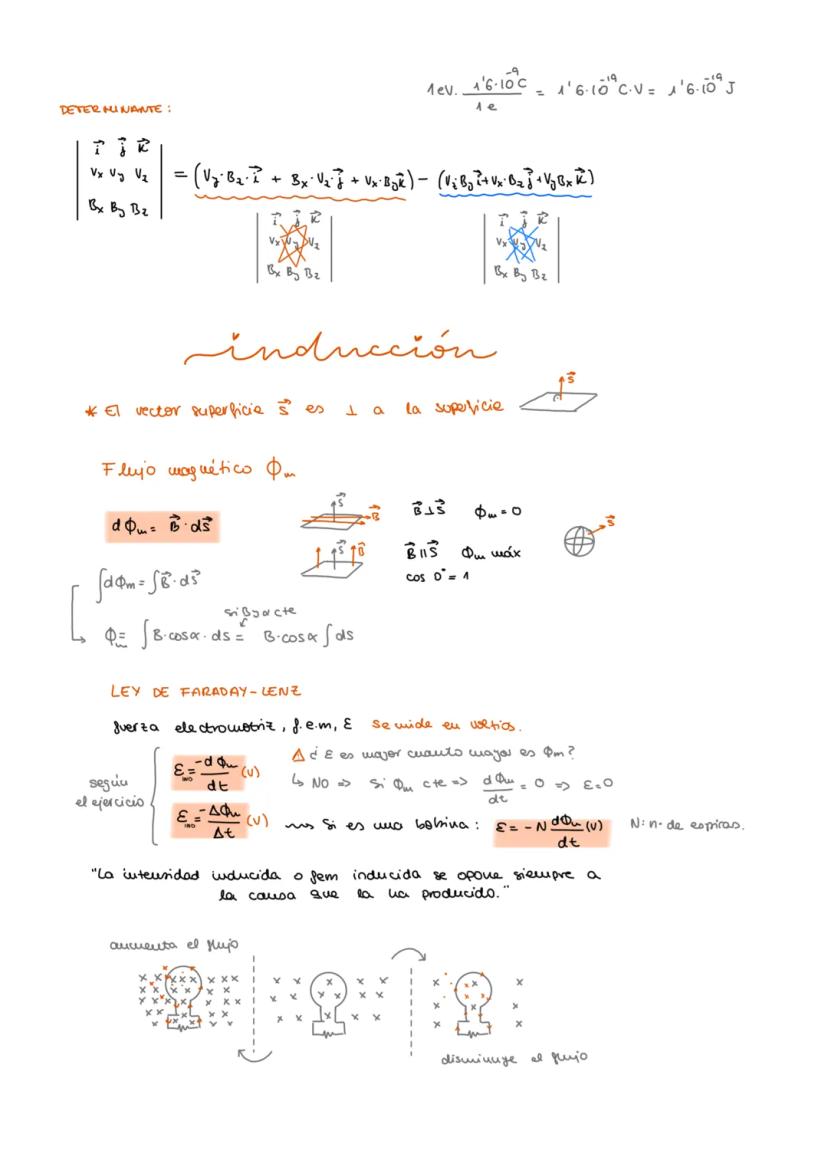 1eV. 1'6·10⁻⁹C / 1e = 1'6·10⁻¹⁹ C·V = 1'6·10⁻¹⁹ J
DETERMINANTE:
| i⃗ j⃗ k⃗ |
| Vx Vy Vz | = (Vy·Bz·i⃗ + Bx·Vz·j⃗ + Vx·By k⃗) - (Vz By i⃗ + Vx·Bz j⃗ + Vy Bx k⃗)
| Bx By Bz |
i⃗ j⃗ k⃗ i⃗ j⃗ k⃗
Vx Vy Vz Vx Vy Vz
Bx By Bz Bx By Bz
inducción
* El vector superficie S⃗ es ⊥ a la superficie S⃗
Flujo magnético Φm
dΦm = B⃗ · dS⃗ S⃗ B⃗ B⃗⊥S⃗ Φm = 0 S⃗
S⃗ B⃗ B⃗ || S⃗ Φm máx
cos 0° = 1
∫dΦm = ∫B⃗·dS⃗
si B y α cte
Φm = ∫B·cosα·ds = B·cosα ∫ds
LEY DE FARADAY-LENZ
fuerza electromotriz, f.e.m, ε se mide en voltios.
según el ejercicio
εIND = -dΦm/dt (V)
⚠ ¿ ε es mayor cuanto mayor es Φm?
↳ NO => si Φm cte => dΦm/dt = 0 => ε=0
εIND = -ΔΦm/Δt (V) Si es una bobina: ε = -N dΦm/dt (V) N: nº de espiras.
"La intensidad inducida o fem inducida se opone siempre a
la causa que la ha producido."
aumenta el flujo
disminuye el flujo